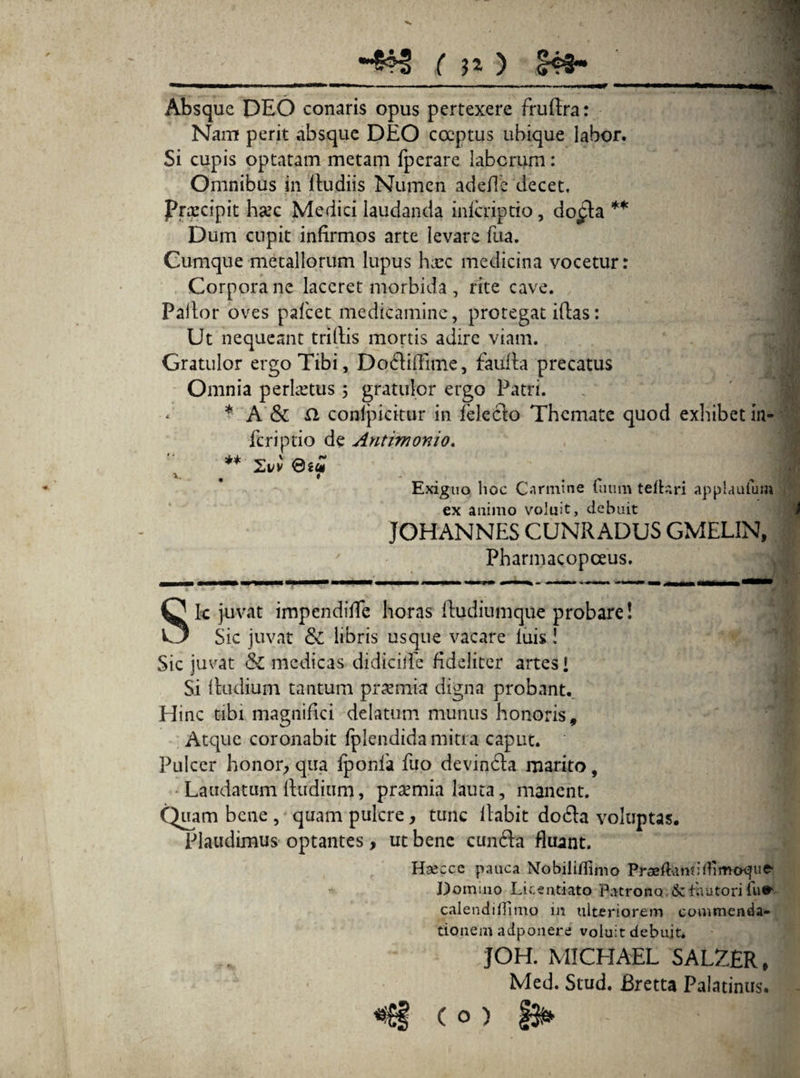 ( 32 )
Absque DEO conaris opus pertexere fruſtra:
Nam perit absque DEO cœptus ubique labor.
Si cupis optatam metam ſperare laborum:
Omnibus in ſtudiis Numen adeſſe decet.
Præcipit hæc Medici laudanda inſcriptio, docta **
Dum cupit infirmos arte levare ſua.
Cumque metallorum lupus hæc medicina vocetur:
Corpora ne laceret morbida, rite cave.
Paſtor oves paſcet medicamine, protegat iſtas:
Ut nequeant triſtis mortis adire viam.
Gratulor ergo Tibi, Doctiſſime, fauſta precatus
Omnia perlætus; gratulor ergo Patri.
* A & Ω conſpicitur in ſelecto Themate quod exhibet in-
ſcriptio de Antimonio.
** Σὺν Θεῷ
Exiguo hoc Carmine ſuum teſtari applauſum
ex animo voluit, debuit
JOHANNES CUNRADUS GMELIN,
Pharmacopœus.
SIc juvat impendiſſe horas ſtudiumque probare!
Sic juvat & libris usque vacare ſuis!
Sic juvat & medicas didiciſſe fideliter artes!
Si ſtudium tantum præmia digna probant.
Hinc tibi magnifici delatum munus honoris,
Atque coronabit ſplendida mitra caput.
Pulcer honor, qua ſponſa ſuo devincta marito,
Laudatum ſtudium, præmia lauta, manent.
Quam bene, quam pulcre, tunc ſtabit docta voluptas.
Plaudimus optantes, ut bene cuncta fluant.
Hæcce pauca Nobiliſſimo Præſtantiſſimoque
Domino Licentiato Patrono & fautori ſuo
calendiſſimo in ulteriorem commenda-
tionem adponere voluit debuit.
JOH. MICHAEL SALZER,
Med. Stud. Bretta Palatinus.
( o )